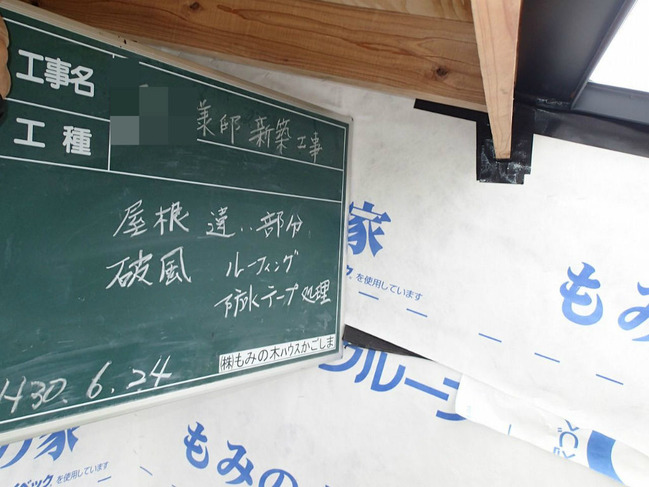 工事名
工種
薬師 新築工事
屋根 違い 部分
破風 ルーフィング
防水テープ処理
㈱もみの木ハウスかごしま
H30.6.24
家
を使用しています
もみ
グループ
り家
もみの
ベック を使用しています